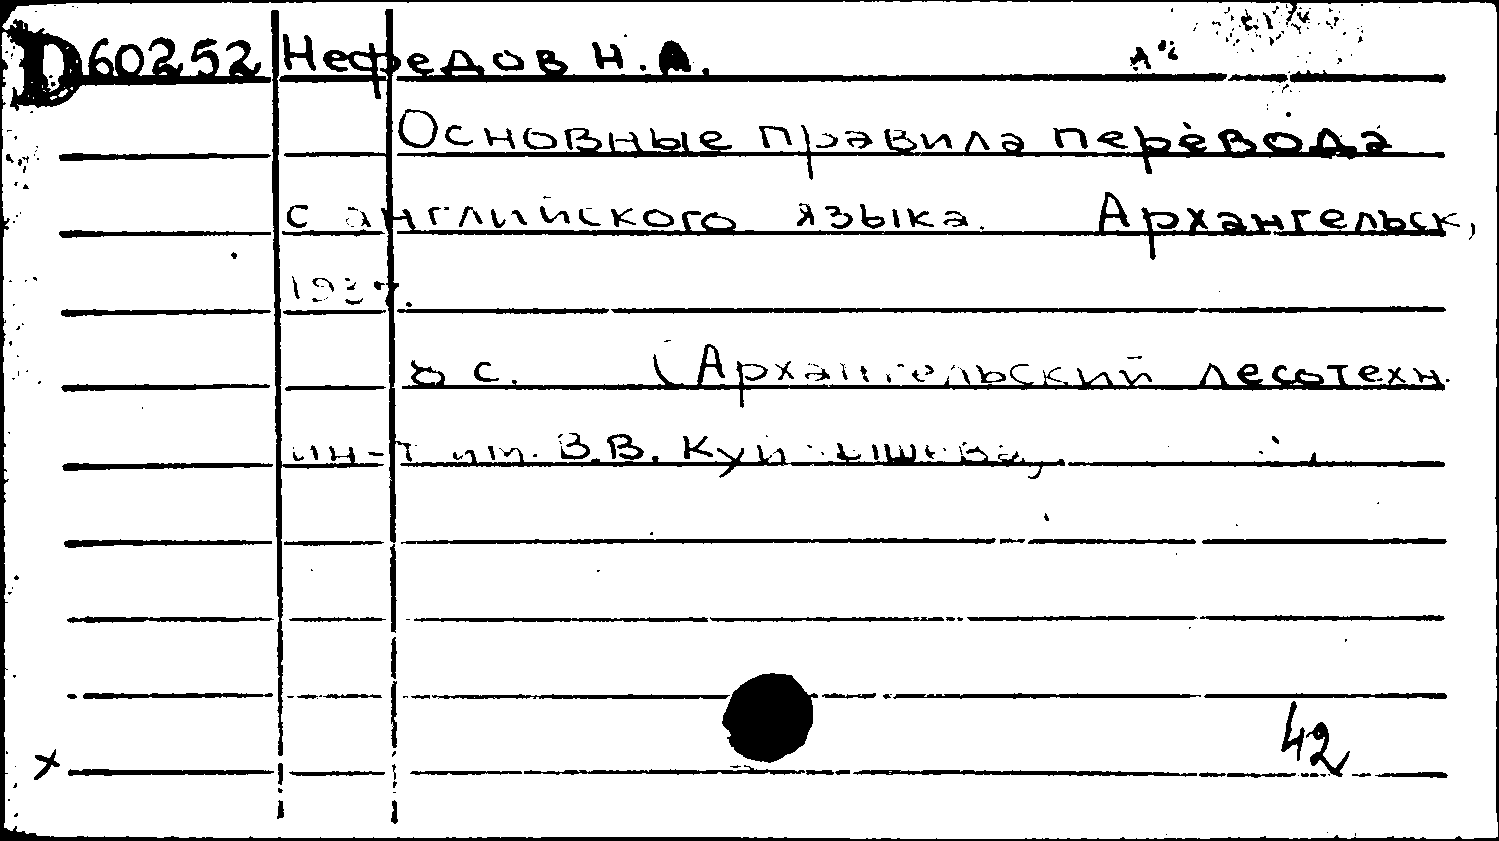 D60252 Нефедов Н.А.
Основные правила перевода
с английского языка. Архангельск,
1937.
8 с. (Архангельский лесотехн.
ин-т им. В.В. Куйбышева,
42